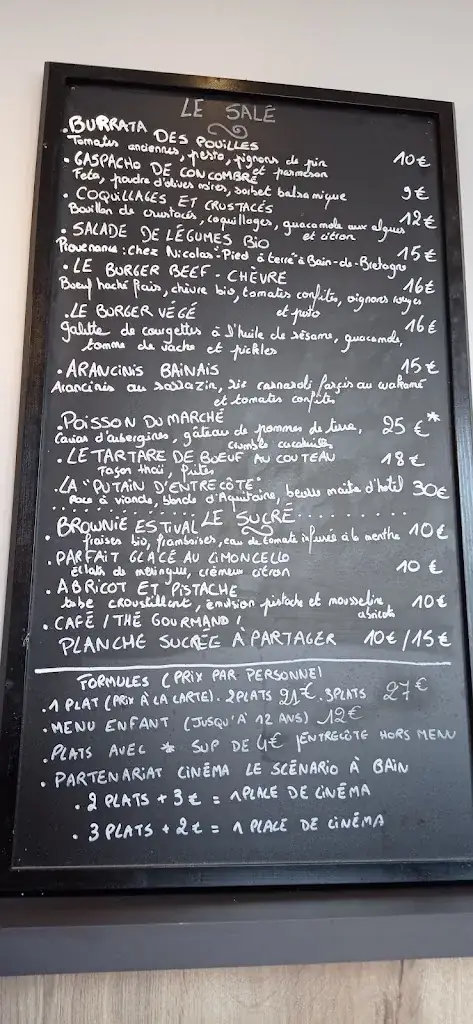 LE SALÉ
. BURRATA DES POUILLES
Tomates anciennes, pesto, pignons de pin et parmesan 10€
. GASPACHO DE CONCOMBRE
Feta, poudre d'olives noires, sorbet balsamique 9€
. COQUILLAGES ET CRUSTACÉS
Bouillon de crustacés, coquillages, guacamole aux algues et citron 12€
. SALADE DE LÉGUMES BIO
Provenance : Chez Nicolas - Pied à terre à Bain-de-Bretagne 15€
. LE BURGER BEEF - CHÈVRE
Boeuf haché frais, chèvre bio, tomates confites, oignons rouges et pesto 16€
. LE BURGER VÉGÉ
galette de courgettes à l'huile de sésame, guacamole, 16€
tomme de vache et pickles
. ARANCINIS BAINAIS 15€
Arancinis au sarrazin, riz carnaroli farçis au wakamé
et tomates confites
. POISSON DU MARCHÉ
Caviar d'aubergines, gâteau de pommes de terre, 25€*
crumble
. LE TARTARE DE BOEUF AU COUTEAU
façon thaï, frites 18€
. LA "PUTAIN D'ENTRECÔTE"
Race à viande, blonde d'Aquitaine, beurre maitre d'hotel 30€
LE SUCRÉ
. BROWNIE ESTIVAL
fraises bio, framboises, eau de tomate infusée à la menthe 10€
. PARFAIT GLACÉ AU LIMONCELLO
Éclats de meringue, crémeux citron 10€
. ABRICOT ET PISTACHE
tube croustillant, émulsion pistache et mousseline abricots 10€
. CAFÉ / THÉ GOURMAND /
PLANCHE SUCRÉE À PARTAGER 10€/15€
FORMULES (PRIX PAR PERSONNE)
. 1 PLAT (PRIX À LA CARTE). 2 PLATS 21€. 3 PLATS 27€
. MENU ENFANT (JUSQU'À 12 ANS) 12€
. PLATS AVEC * SUP DE 4€ | ENTRECÔTE HORS MENU
. PARTENARIAT CINÉMA LE SCÉNARIO À BAIN
. 2 PLATS + 3€ = 1 PLACE DE CINÉMA
. 3 PLATS + 2€ = 1 PLACE DE CINÉMA